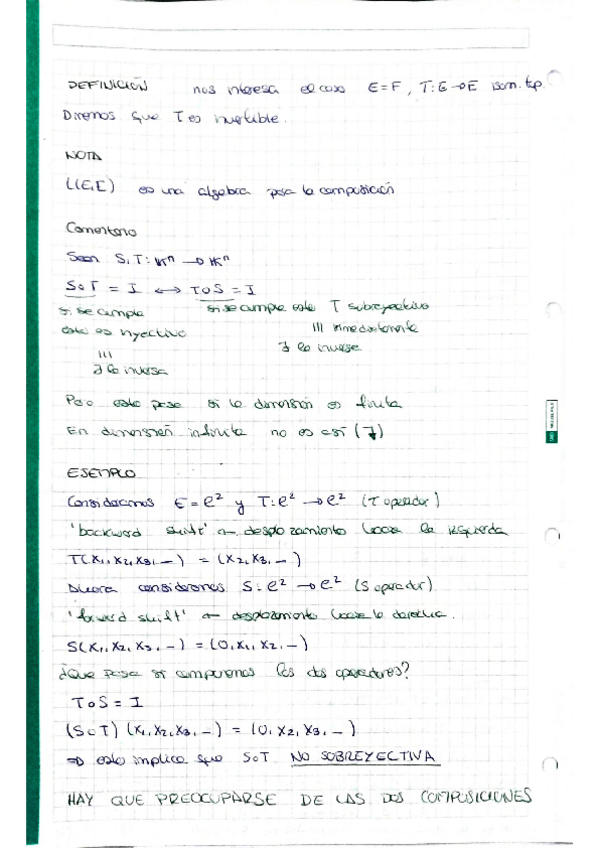 DEFINICIÓN nos interesa el caso E=F, T:E→E isom. top.
Diremos que T es invertible.
NOTA
L(E,E) es una algebra para la composición
Comentario
Sean S,T: 𝕂ⁿ → 𝕂ⁿ
S∘T = I ↔ T∘S = I
si se cumple si se cumple esto T subreyectivo
esto es inyectivo ||| inmediatamente
||| ∃ la inversa
∃ la inversa
Pero esto pasa si la dimensión es finita
En dimensión infinita no es así
EJEMPLO
Consideramos E=ℓ² y T:ℓ² → ℓ² (T operador)
'backward shift' ← desplazamiento hacia la izquierda
T(x₁,x₂,x₃,—) = (x₂,x₃,—)
Ahora consideramos S:ℓ² → ℓ² (S operador)
'forward shift' ← desplazamiento hacia la derecha.
S(x₁,x₂,x₃,—) = (0,x₁,x₂,—)
¿Que pasa si componemos los dos operadores?
T∘S = I
(S∘T)(x₁,x₂,x₃,—) = (0,x₂,x₃,—)
⇒ esto implica que S∘T NO SOBREYECTIVA
HAY QUE PREOCUPARSE DE LAS DOS COMPOSICIONES